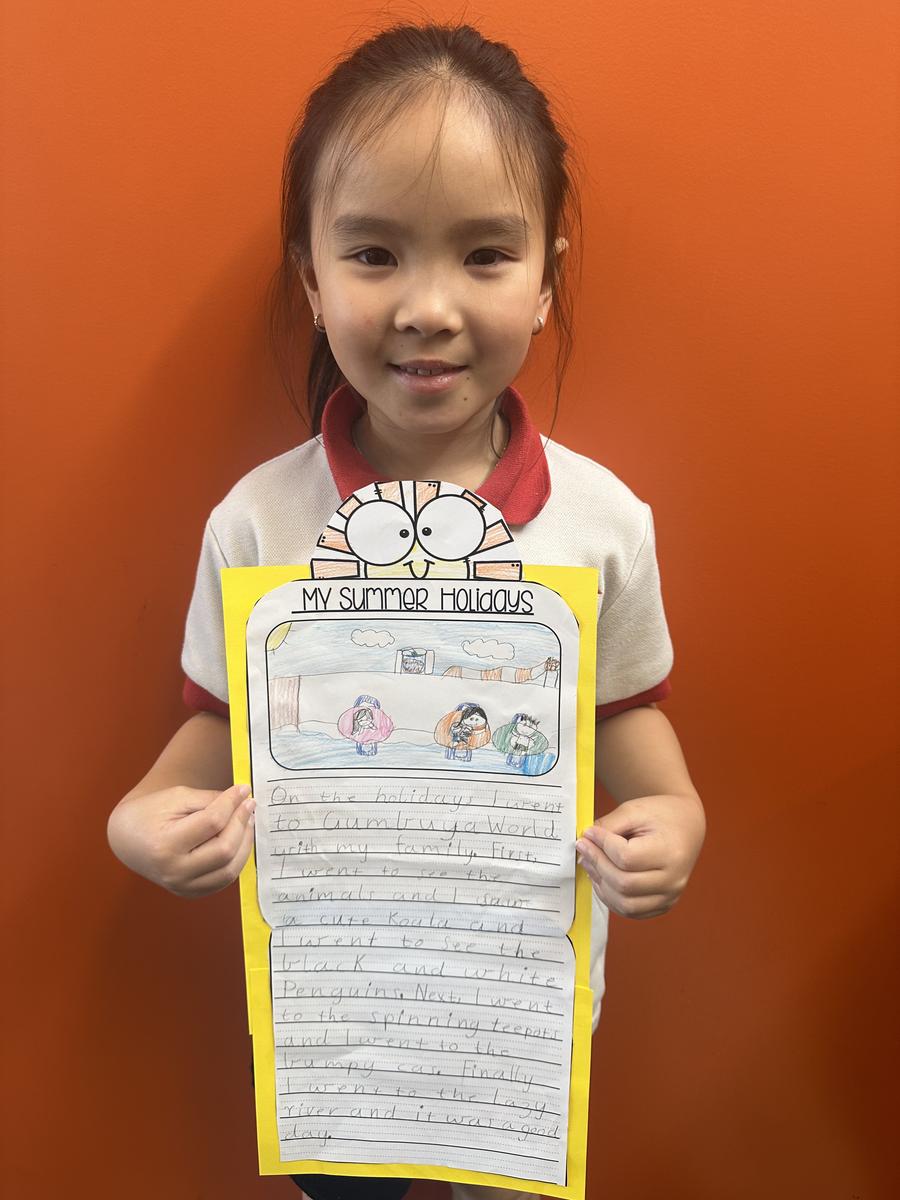 MY SUMMER HOLIDAYS
On the holidays I went
to Gumbuya World
with my family. First,
I went to see the
animals and I saw
a cute Koala and
I went to see the
black and white
Penguins. Next, I went
to the spinning teepots
and I went to the
bumpy cas. Finally
I went to the lazy
river and it was a good
day.